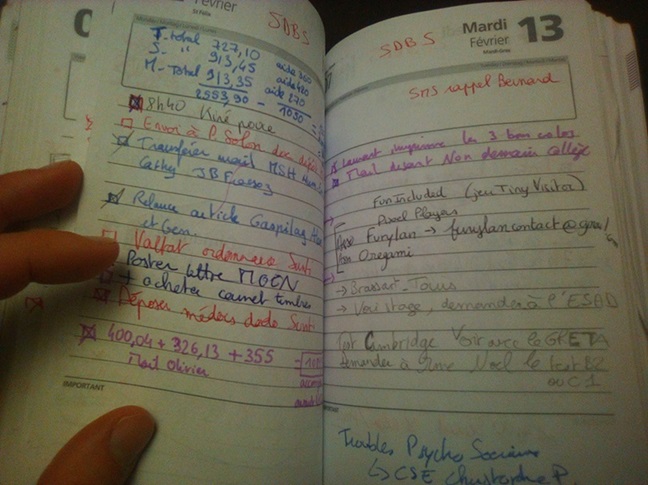 Février
SDBS
T-total 727,10 aide 360
S- " 913,45 aide 420
M-Total 913,35 aide 270
2553,90 - 1050 =
8h40 Kiné
Envoi à P.
Transférer mail MSH
Cathy JB
Relance article Gaspilag
et Gem.
ordonnance
Poster lettre MOON
+ acheter carnet timbres
Déposer médocs dodo
400,04 + 326,13 + 355
Mail Olivier
IMPORTANT
SDBS
Mardi 13
Février
SMS rappel Bernard
Laurent imprimer les 3 bon colos
Mail disant Non demain collège
Fun Included (jeu Tiny Visitor)
Pixel Players
Furylan → furylancontact@gmai
Oregami
→ Brassart-Tours
→ Voir stage, demander à l'ESAD
Test Cambridge Voir avec le GRETA
Demander à Mme Noel le test B2
ou C1
Troubles Psycho Sociaux
↳ CSE Christophe P.